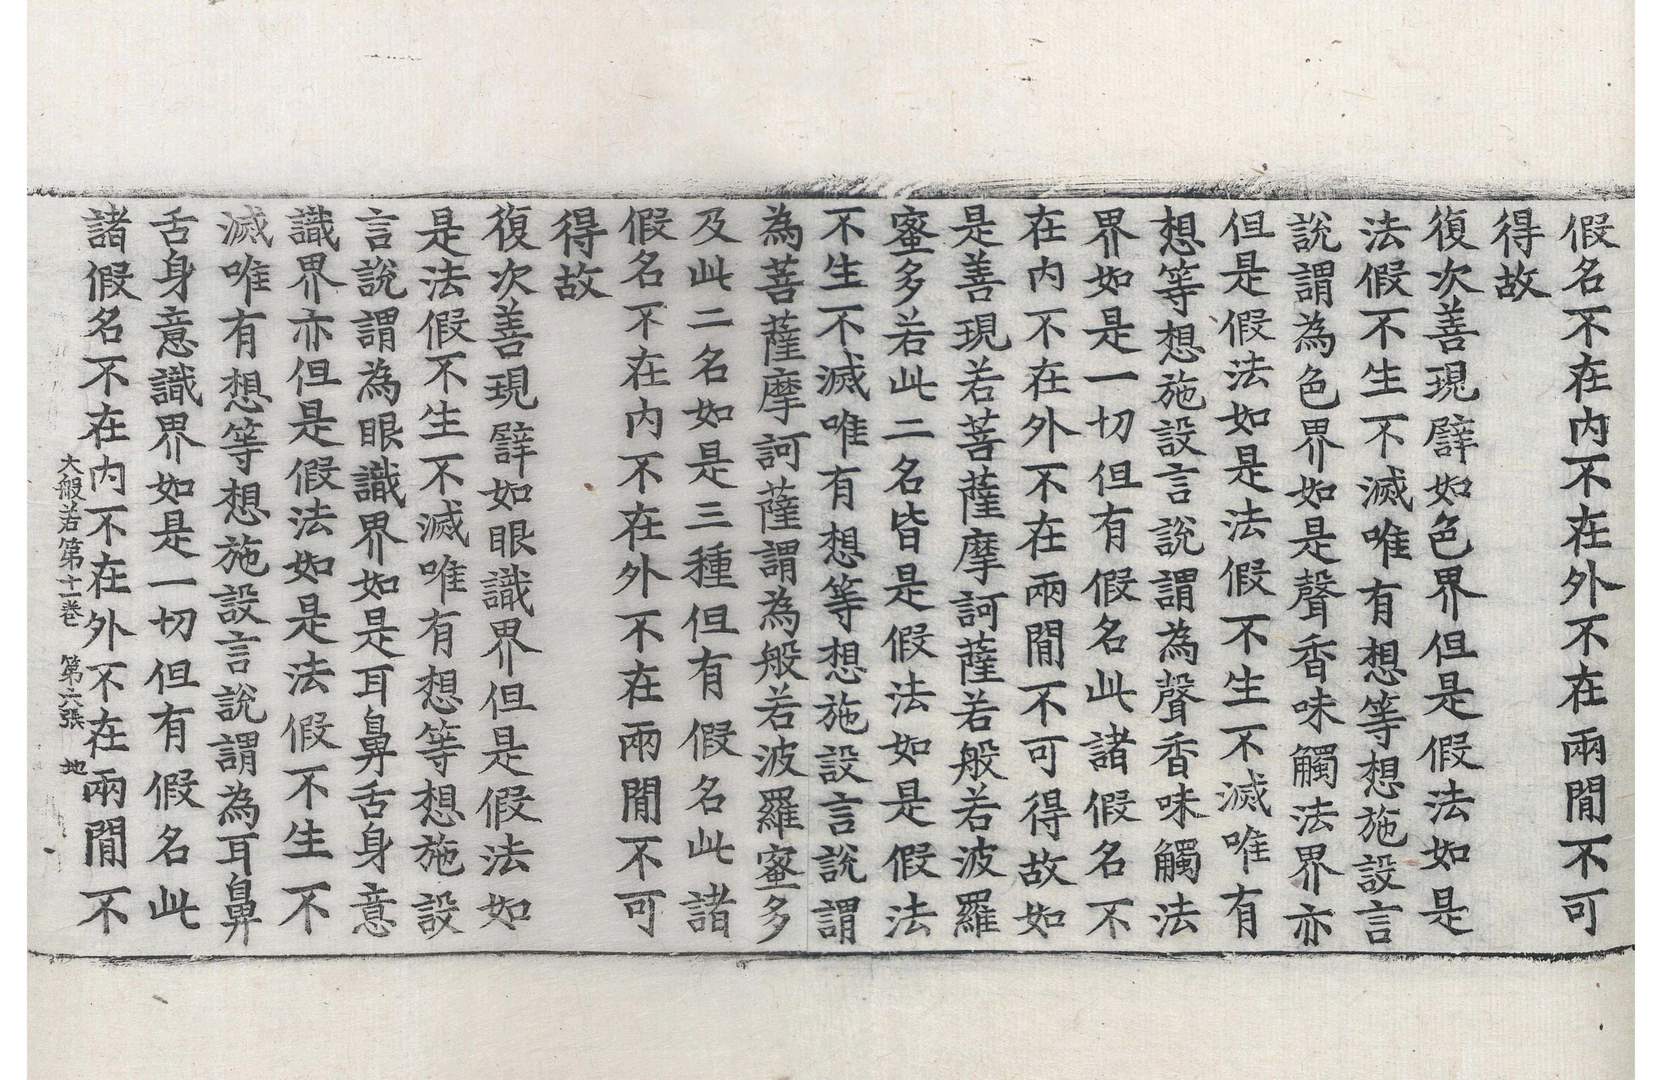 假名不在内不在外不在兩閒不可
得故
復次善現譬如色界但是假法如是
法假不生不滅唯有想等想施設言
說謂為色界如是聲香味觸法界亦
但是假法如是法假不生不滅唯有
想等想施設言說謂為聲香味觸法
界如是一切但有假名此諸假名不
在内不在外不在兩閒不可得故如
是善現若菩薩摩訶薩若般若波羅
蜜多若此二名皆是假法如是假法
不生不滅唯有想等想施設言說謂
為菩薩摩訶薩謂為般若波羅蜜多
及此二名如是三種但有假名此諸
假名不在内不在外不在兩閒不可
得故
復次善現譬如眼識界但是假法如
是法假不生不滅唯有想等想施設
言說謂為眼識界如是耳鼻舌身意
識界亦但是假法如是法假不生不
滅唯有想等想施設言說謂為耳鼻
舌身意識界如是一切但有假名此
諸假名不在内不在外不在兩閒不
大般若第十一卷 第六張 地